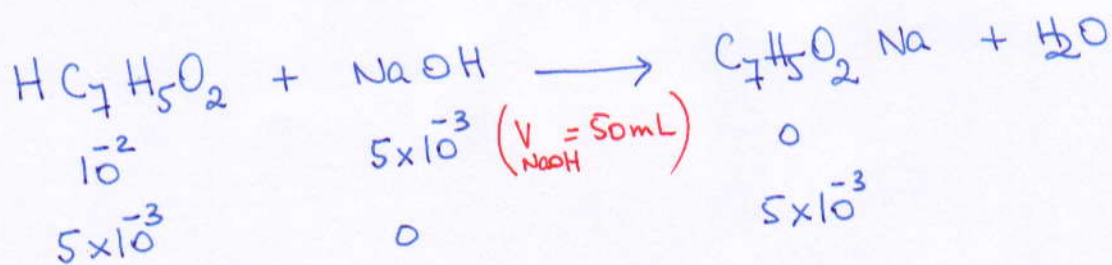 HC₇H₅O₂ + NaOH ⟶ C₇H₅O₂Na + H₂O
10⁻² 5×10⁻³ (V_NaOH = 50mL) 0
5×10⁻³ 0 5×10⁻³